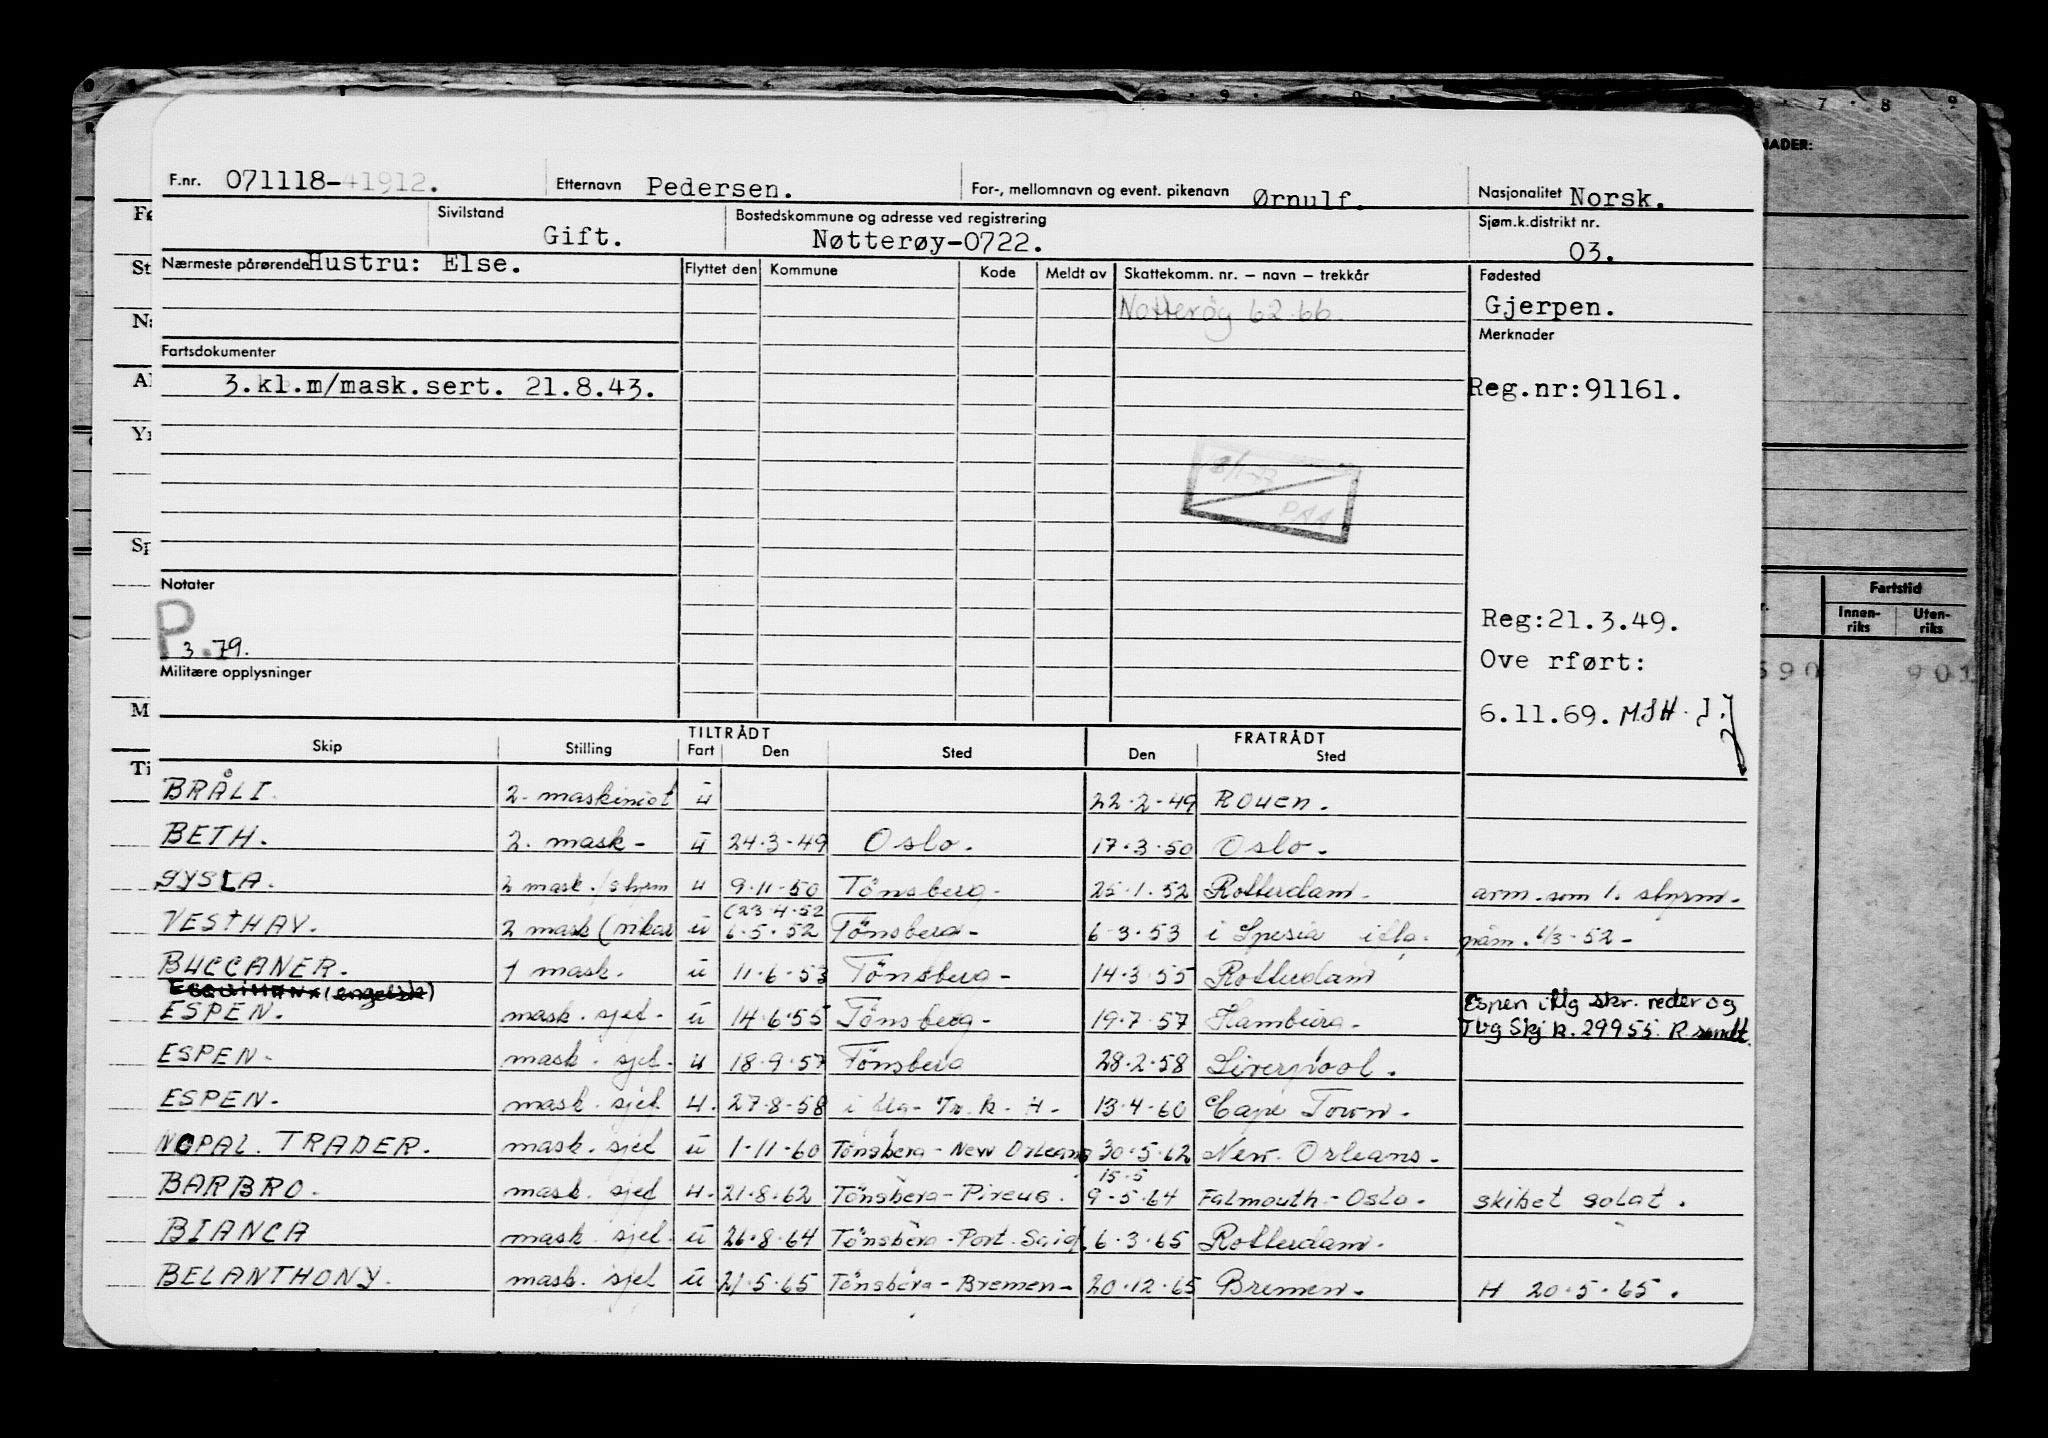 F.nr. 071118-41912. Etternavn Pedersen. For-, mellomnavn og event. pikenavn Ørnulf. Nasjonalitet Norsk.
Sivilstand Gift. Bostedskommune og adresse ved registrering Nøtterøy-0722. Sjøm.k.distrikt nr. 03.
Nærmeste pårørende Hustru: Else. Flyttet den Kommune Kode Meldt av Skattekomm. nr. – navn – trekkår Fødested
Nøtterøy 62.66. Gjerpen.
Merknader
Fartsdokumenter
3.kl.m/mask.sert. 21.8.43. Reg.nr:91161.
PAA
Notater
P 3.79.
Reg:21.3.49.
Ove rført:
Militære opplysninger
6.11.69. MSH.
TILTRÅDT FRATRÅDT
Skip Stilling Fart Den Sted Den Sted
BRÅLI. 2. maskinist u 22.2.49 Rouen.
BETH. 2. mask- u 24.3.49 Oslo. 17.3.50 Oslo.
SYSLA. 2 mask./styrm u 9.11.50 Tönsberg- 25.1.52 Rotterdam. arm. som 1. styrm.
(23.4.52
VESTHAV. 2 mask (vikar u 6.5.52 Tönsberg- 6.3.53 i Spesia iflg. påm. 6/3-52-
BUCCANER. 1 mask. u 11.6.53 Tönsberg- 14.3.55 Rotterdam
(engelsk) Espen iflg skr. reder og
ESPEN. mask. sjef- u 14.6.55 Tönsberg- 19.7.57 Hamburg. Tbg Skj k. 29955. R sendt.
ESPEN. mask. sjef- u 18.9.57 Tönsberg 28.2.58 Liverpool.
ESPEN. mask. sjef u. 27.8.58 i flg- Tr. k. H. 13.4.60 Cape Town.
NOPAL. TRADER. mask. sjef u 1-11-60 Tönsberg-New Orleans 30.5.62 New. Orleans.
15.5
BARBRO. mask. sjef u. 21.8.62 Tönsberg-Pireus. 9.5.64 Falmouth-Oslo. skibet solgt.
BIANCA mask. sjef. u 26.8.64 Tönsberg-Port. Said. 6.3.65 Rotterdam.
BELANTHONY. mask. sjef u 21.5.65 Tönsberg-Bremen- 20.12.65 Bremen. H 20.5.65.
NADER:
Fartstid
Innen-riks Uten-riks
590 901